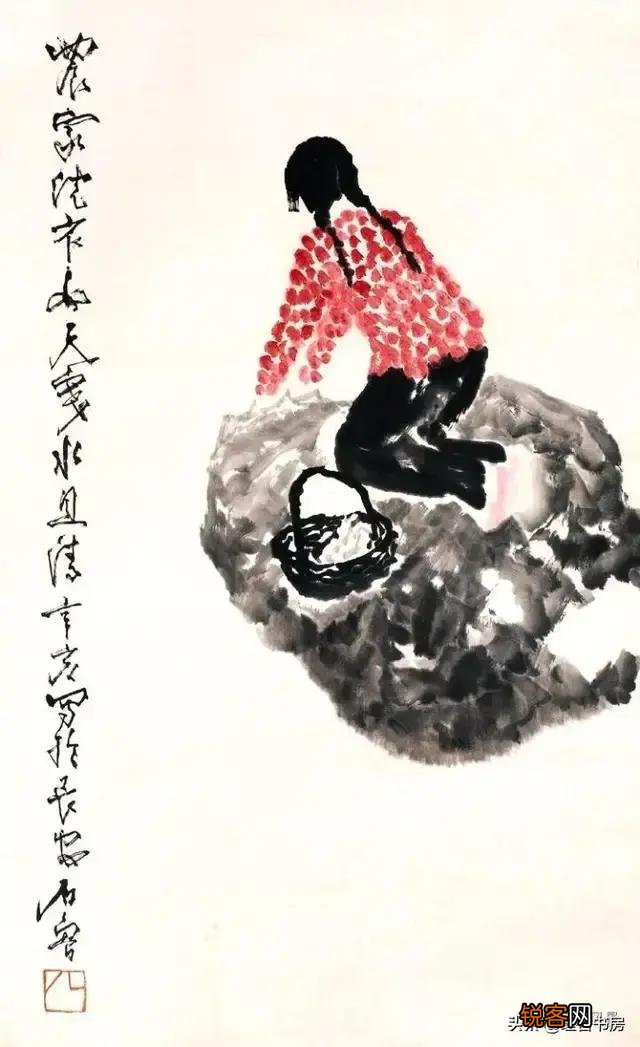 農家洗衣女天寒水且清辛亥写於長安石魯
锐客网
头条 @ 书房